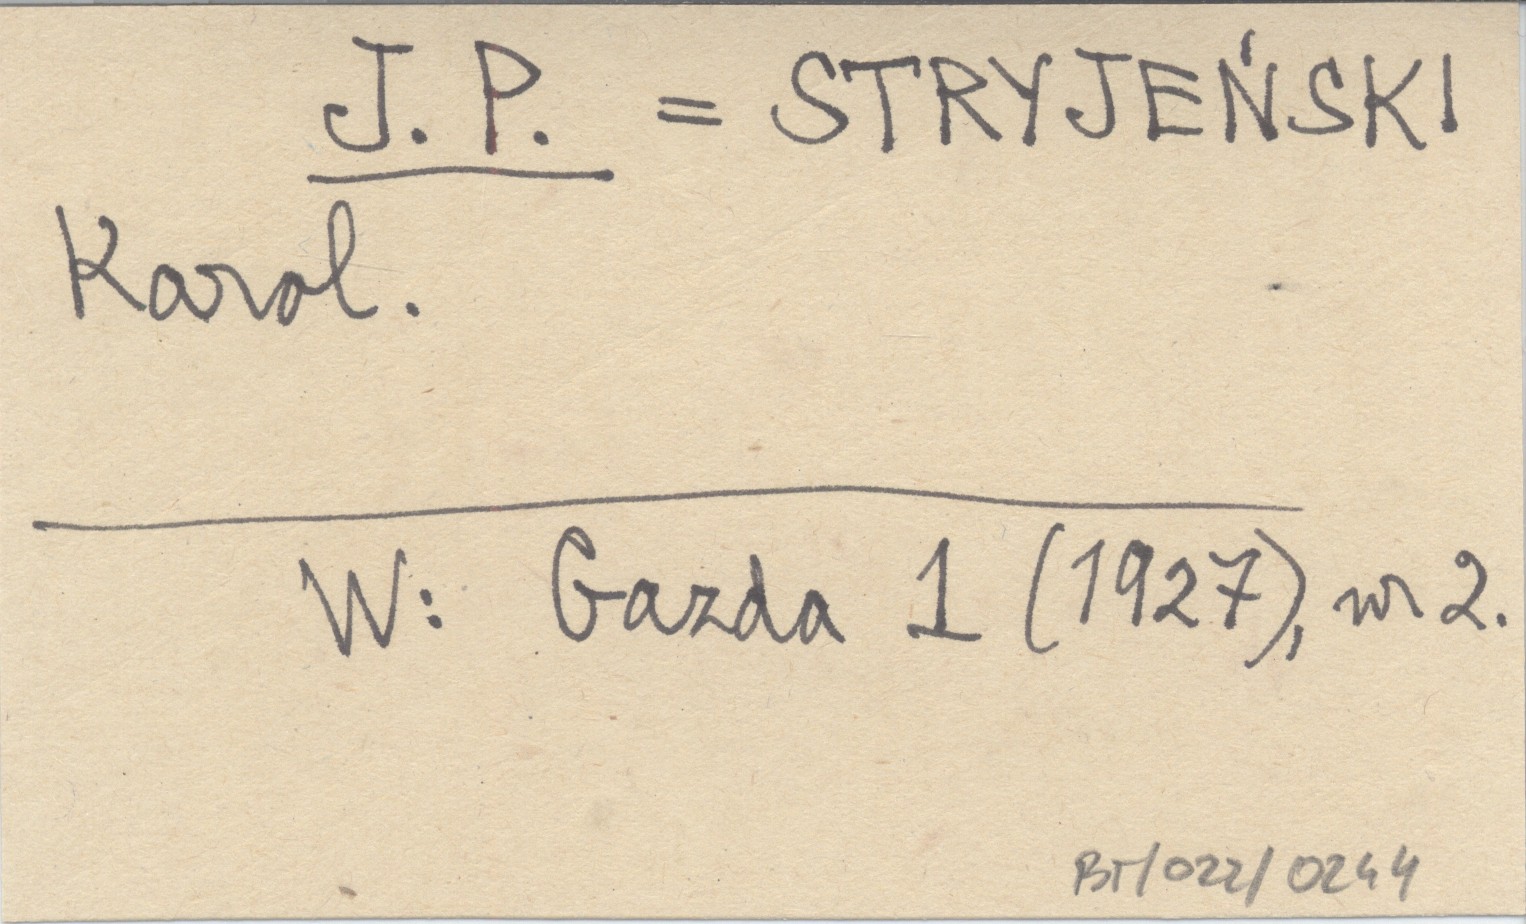 J. P. = STRYJEŃSKI
Karol.
W: Gazda 1 (1927), nr 2.
BT/022/0244